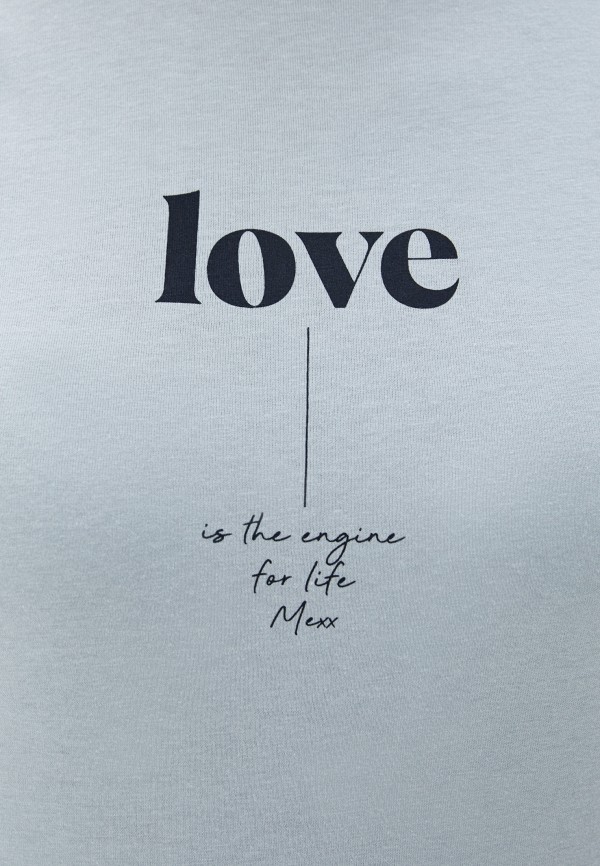 love
is the engine
for life
Mexx